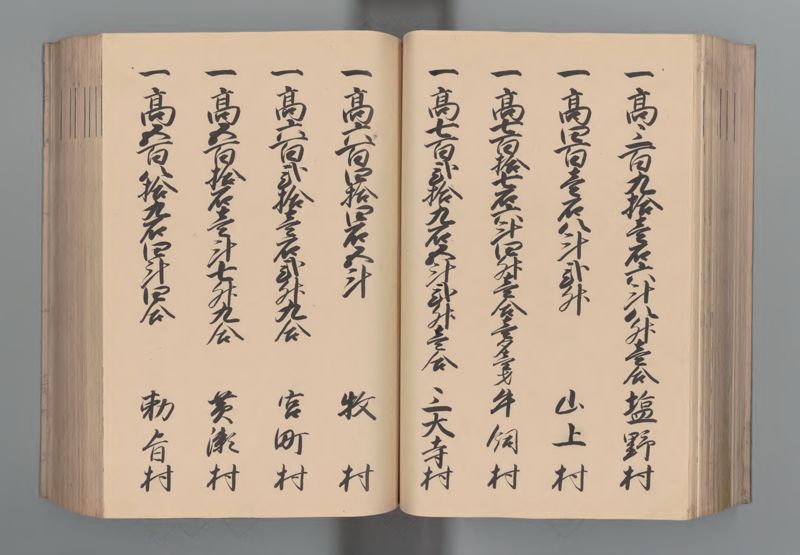 一高三百九拾壱石六斗八升壱合 塩野村
一高四百壱石八斗弐升 山上村
一高七百拾七石六斗四升壱合 牛飼村
一高七百弐拾九石五斗弐升壱合 三大寺村
一高六百四拾四石五斗 牧村
一高六百弐拾壱石弐升九合 宮町村
一高五百拾石壱斗七升九合 黄瀬村
一高五百八拾九石四斗四合 勅旨村